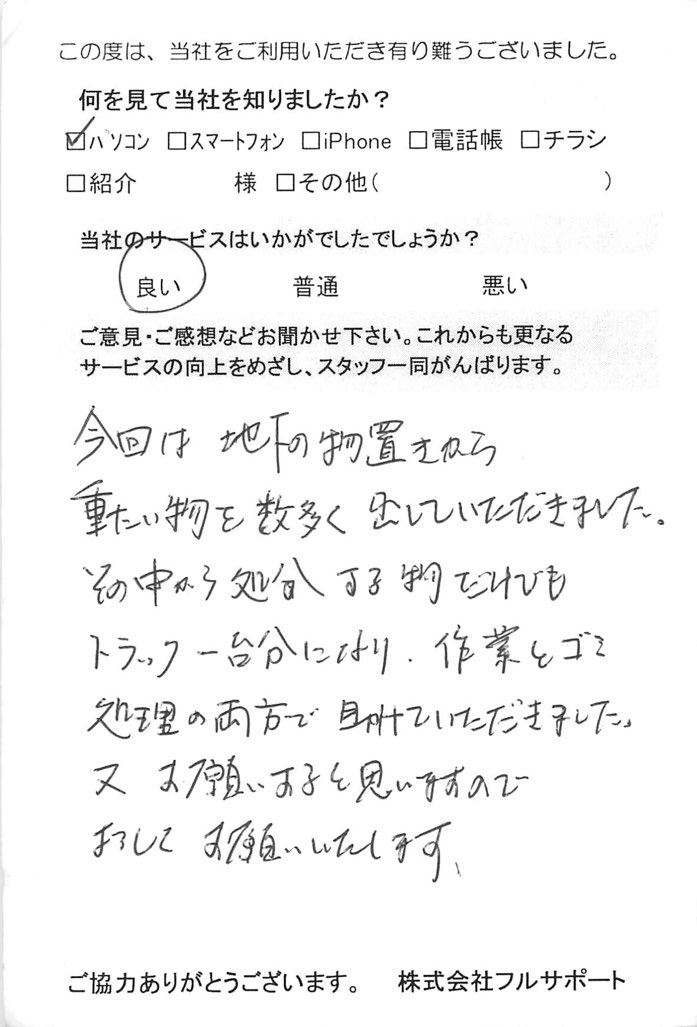 この度は、当社をご利用いただき有り難うございました。
何を見て当社を知りましたか？
☑パソコン □スマートフォン □iPhone □電話帳 □チラシ
□紹介 様 □その他( )
当社のサービスはいかがでしたでしょうか？
良い 普通 悪い
ご意見・ご感想などお聞かせ下さい。これからも更なる
サービスの向上をめざし、スタッフ一同がんばります。
今回は 地下の物置きから
重たい物を数多く出していただきました。
その中から処分する物だけでも
トラック一台分になり、作業とゴミ
処理の両方で助けていただきました。
又 お願いすると思いますので
よろしく お願いいたします、
ご協力ありがとうございます。 株式会社フルサポート